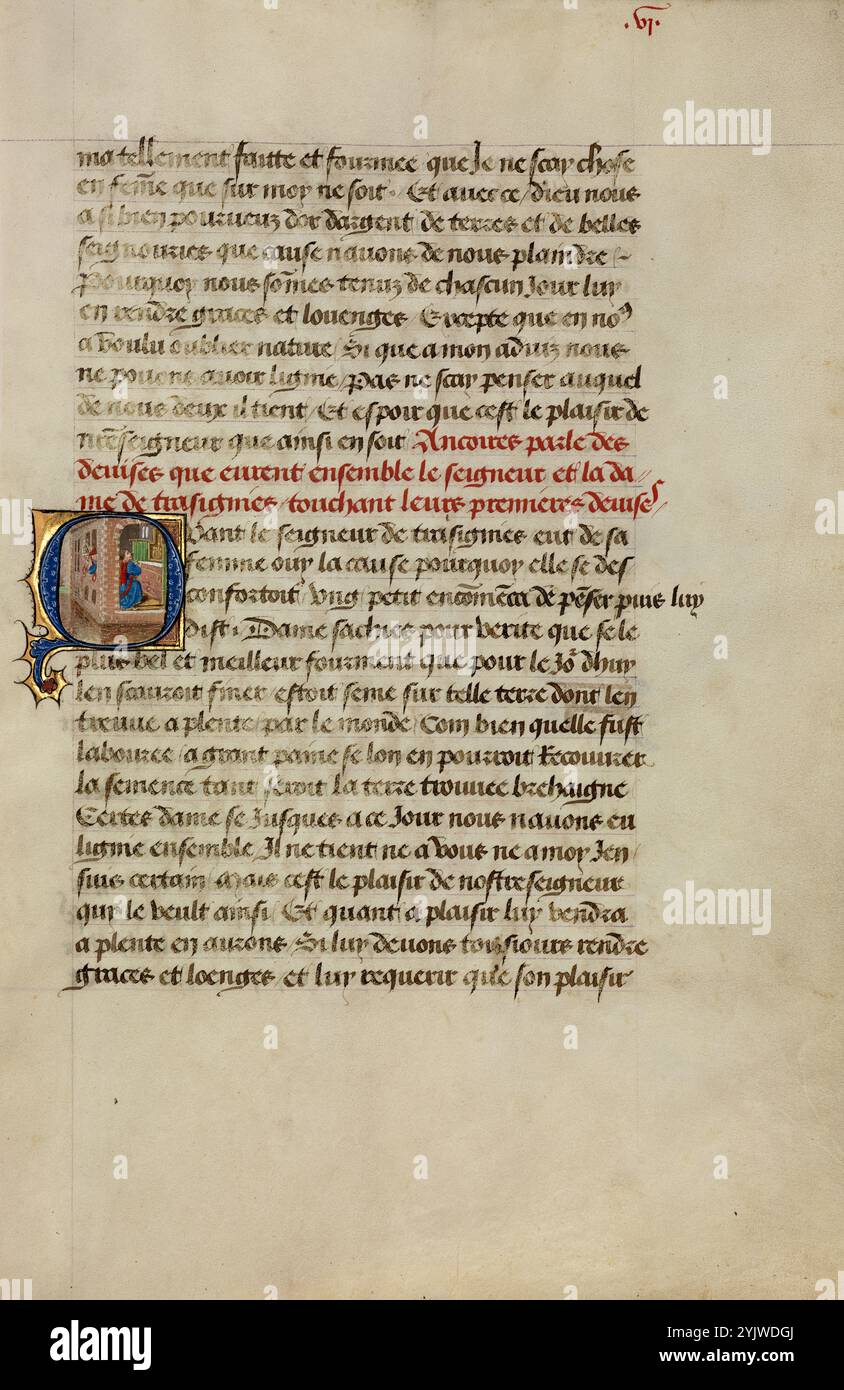 .vi.
13
ma tellement faitte et fourmee que Je ne scay chose
en fem̄e que sur moy ne soit. Et avec ce / dieu nous
a si bien pourueuz dor dargent de terres et de belles
seignouries que cause nauons de nous plaindre
Pourquoy nous som̄es tenuz de chascun Jour luy
en rendre graces et louenges / Excepte que en noꝰ
a voulu oublier nature / Si que a mon aduiz nous
ne pouons auoir ligniee / Pas ne scay penser auquel
de nous deux il tient / Et espoir que cest le plaisir de
nr̄e seigneur que ainsi en soit Ancoires parle des
deuises que eurent ensemble le seigneur et la da
me de trasignies / touchant leurs premieres deuises
Quant le seigneur de trasignies eut de sa
femme ouy la cause pourquoy elle se des
confortoit / vng petit en com̄enca de pēser puis luy
dist. Dame sachies pour verite que se le
plus bel et meilleur fourment que pour le Jo᷑ dhuy
len scauroit finer estoit seme sur telle terre dont len
treuue a plente par le monde / Com bien quelle fust
labouree / a grant paine se lon en pourroit Recouurer
la semence tant seroit la terre trouuee brehaigne
Certes dame se Jusques a ce Jour nous nauons eu
ligniee ensemble / Il ne tient ne a vous ne a moy Jen
suis certain / Mais cest le plaisir de nostre seigneur
qui le veult ainsi / Et quant a plaisir luy vendra
a plente en aurons / Si luy deuons tousiours rendre
graces et loenges / et luy requerir que son plaisir
alamy
a
alamy
www.alamy.com
Image ID: 2YJWDGJ